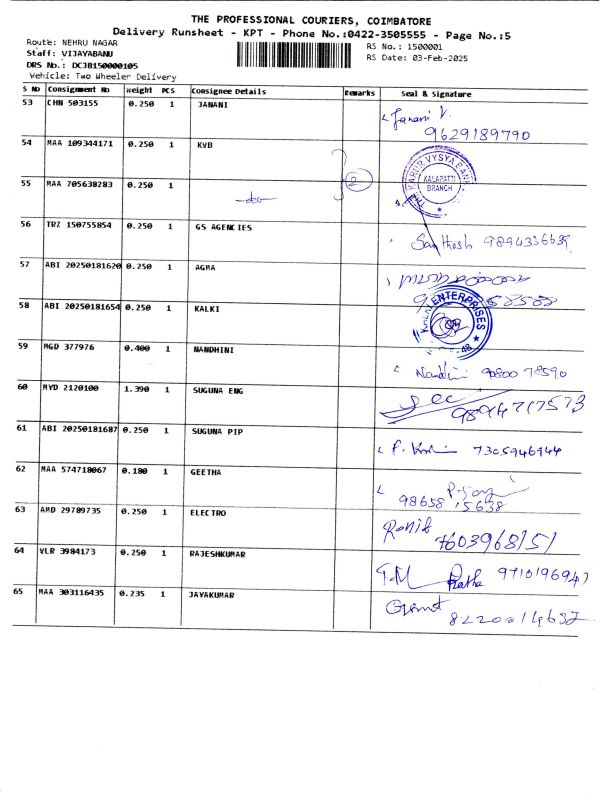 THE PROFESSIONAL COURIERS, COIMBATORE
Delivery Runsheet - KPT - Phone No.:0422-3505555 - Page No.:5
Route: NEHRU NAGAR
RS No.: 1500001
Staff: VIJAYABANU
RS Date: 03-Feb-2025
DRS No.: DCJB150000105
Vehicle: Two Wheeler Delivery
S No Consignment No Weight PCS Consignee Details Remarks Seal & Signature
53 CHN 503155 0.250 1 JANANI Janani V.
9629189790
54 MAA 109344171 0.250 1 KVB
THE KARUR VYSYA BANK
KALAPATTI
BRANCH
55 MAA 705638283 0.250 1 -do- 2
56 TRZ 150755854 0.250 1 GS AGENCIES Santhosh 9894336639
57 ABI 20250181620 0.250 1 AGMA
58 ABI 20250181654 0.250 1 KALKI
ENTERPRISES
59 MGD 377976 0.400 1 NANDHINI Nandhini 90800 78590
60 MYD 2120100 1.390 1 SUGUNA ENG
9894717573
61 ABI 20250181687 0.250 1 SUGUNA PIP 7305946944
62 MAA 574718067 0.180 1 GEETHA
98658 15638
63 AMD 29789735 0.250 1 ELECTRO
7603968151
64 VLR 3984173 0.250 1 RAJESHKUMAR 9710196947
65 MAA 303116435 0.235 1 JAYAKUMAR
8220014632